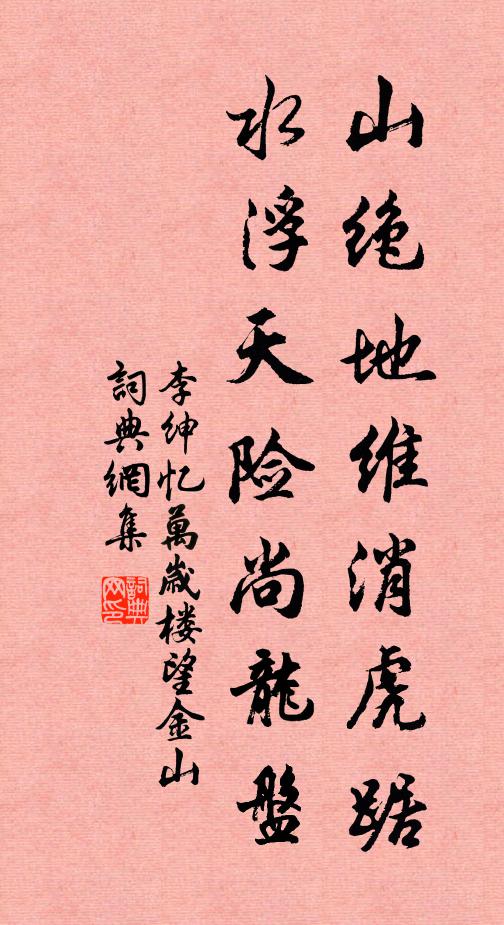 山绝地维消虎踞
水浮天险尚龙盤
李绅忆萬歲楼望金山
詞典網集
詞典网印